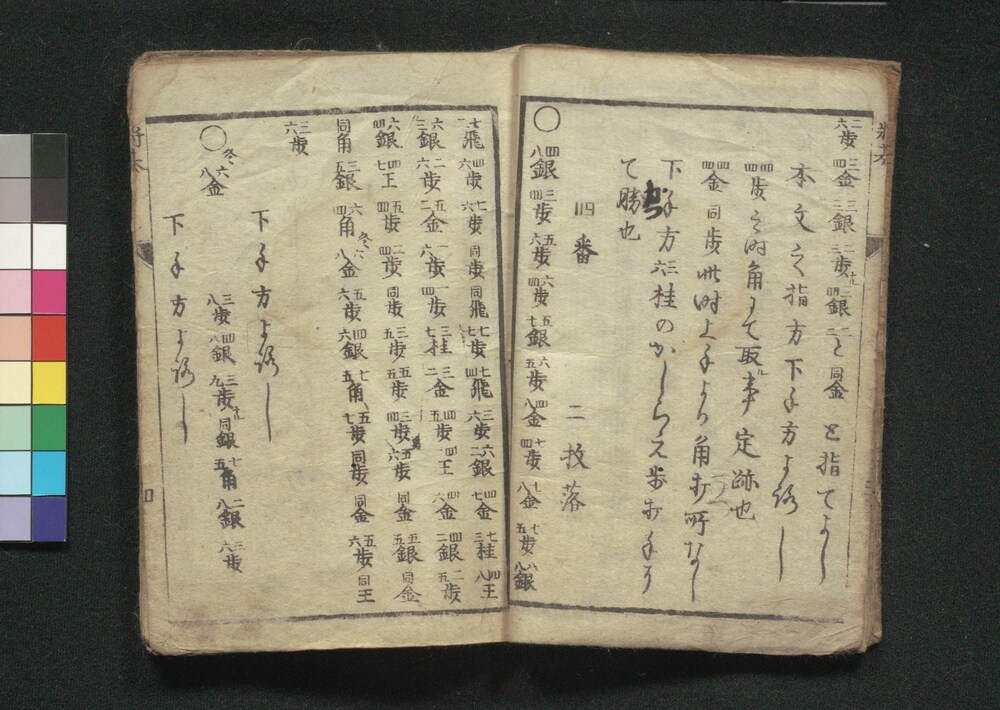 二六歩 三四金 三三銀 二三歩 二四銀 と 同金 と指てよし
本文之指方下手方よろし
四四歩之時角にて取事定跡也
四四金 同歩 此時上手より角打所なし
下手方六三桂のかしらえ歩打手有
て勝也
四番 二枚落
○ 四八銀 三四歩 五六歩 六四歩 五七銀 六五歩 四八金 七四歩 七八金 七五歩 八八銀
飛 四六歩 七六歩 同歩 同飛 七七歩 四七飛 三六歩 六二銀 四七金 七三桂 四八王
六三銀 二六歩 五二金 一六歩 一四歩 三七桂 三二金 四五歩 四一王 四六金 四二銀 二五歩
六四銀 四七王 五四歩 二四歩 同歩 三五歩 五五歩 三四歩 五六歩 同金 五五銀 同金
同角 三五銀 六四角 六八金 五六歩 四六銀 七五角 五七歩 同歩 同金 五六歩 同王
三六歩
下手方よろし
○ 六八金 三八歩 四八銀 三九歩 同銀 七五角 二八銀 三六歩
下手方よろし